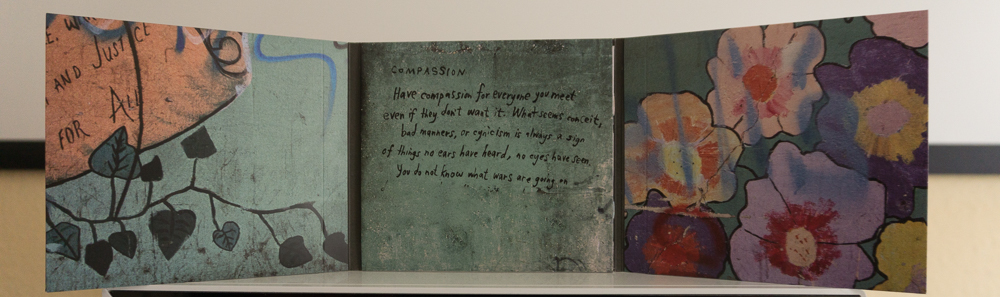 AND JUSTICE
FOR ALL
COMPASSION
Have compassion for everyone you meet
even if they don't want it. What seems conceit,
bad manners, or cynicism is always a sign
of things no ears have heard, no eyes have seen.
You do not know what wars are going on